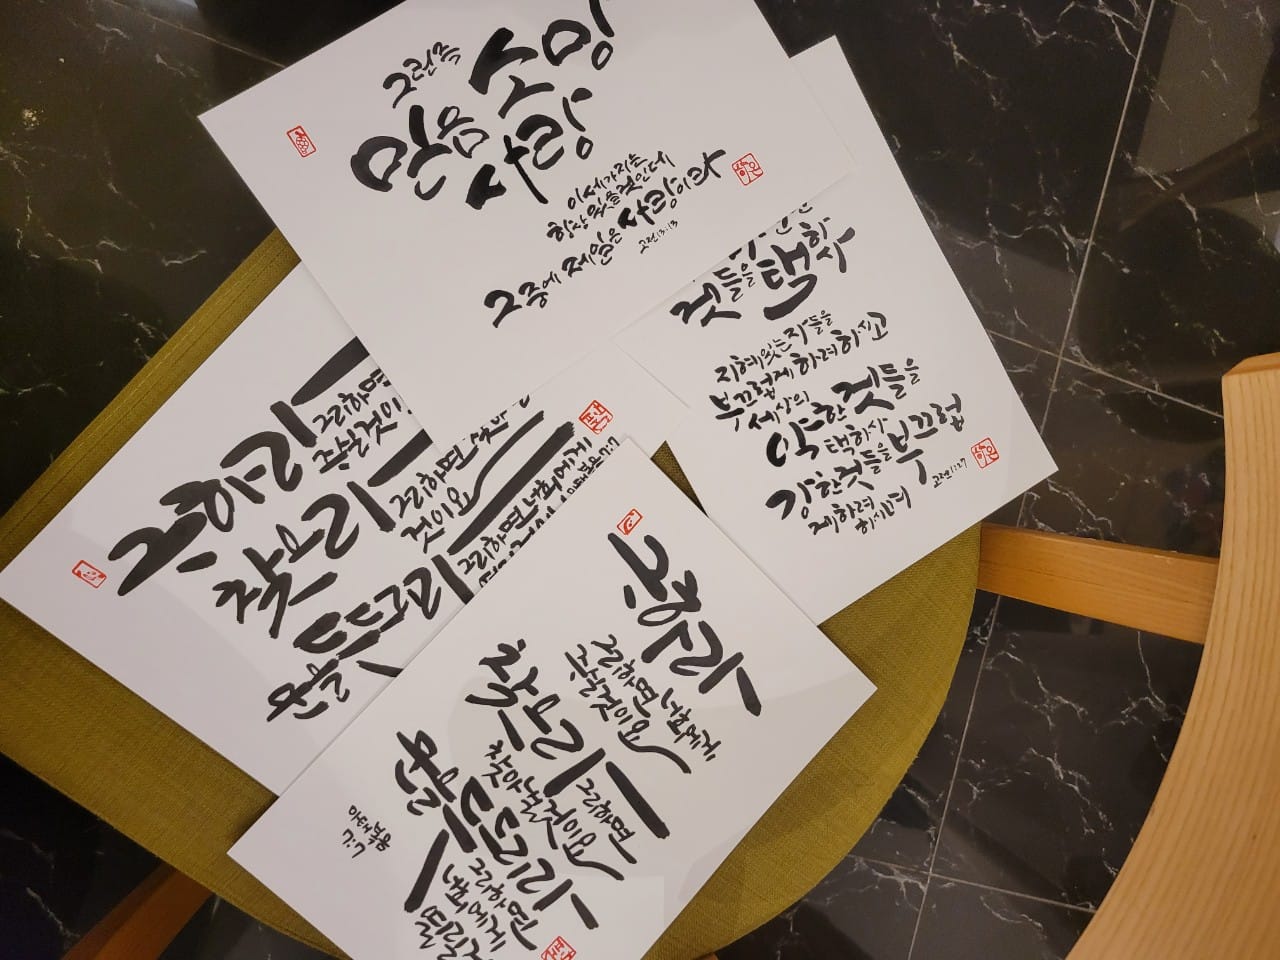 그런즉
믿음 소망
사랑
이세가지는
항상있을것인데
그중에 제일은 사랑이라
고전13:13
것들을 택하사
지혜있는자들을
부끄럽게 하려하시고
세상의
약한 것들을
택하사
강한것들을 부끄럽
게하려
고전1:27
구하라
그리하면
주실것이
찾으라
그리하면
것이요
문을 두드리라
그리하면 너희에게
마태복음7:7
구하라
그리하면 너희에게
주실것이요
찾으라
그리하면
찾아낼것이요
문을 두드리라
그리하면
너희에게
마태복음
7:7